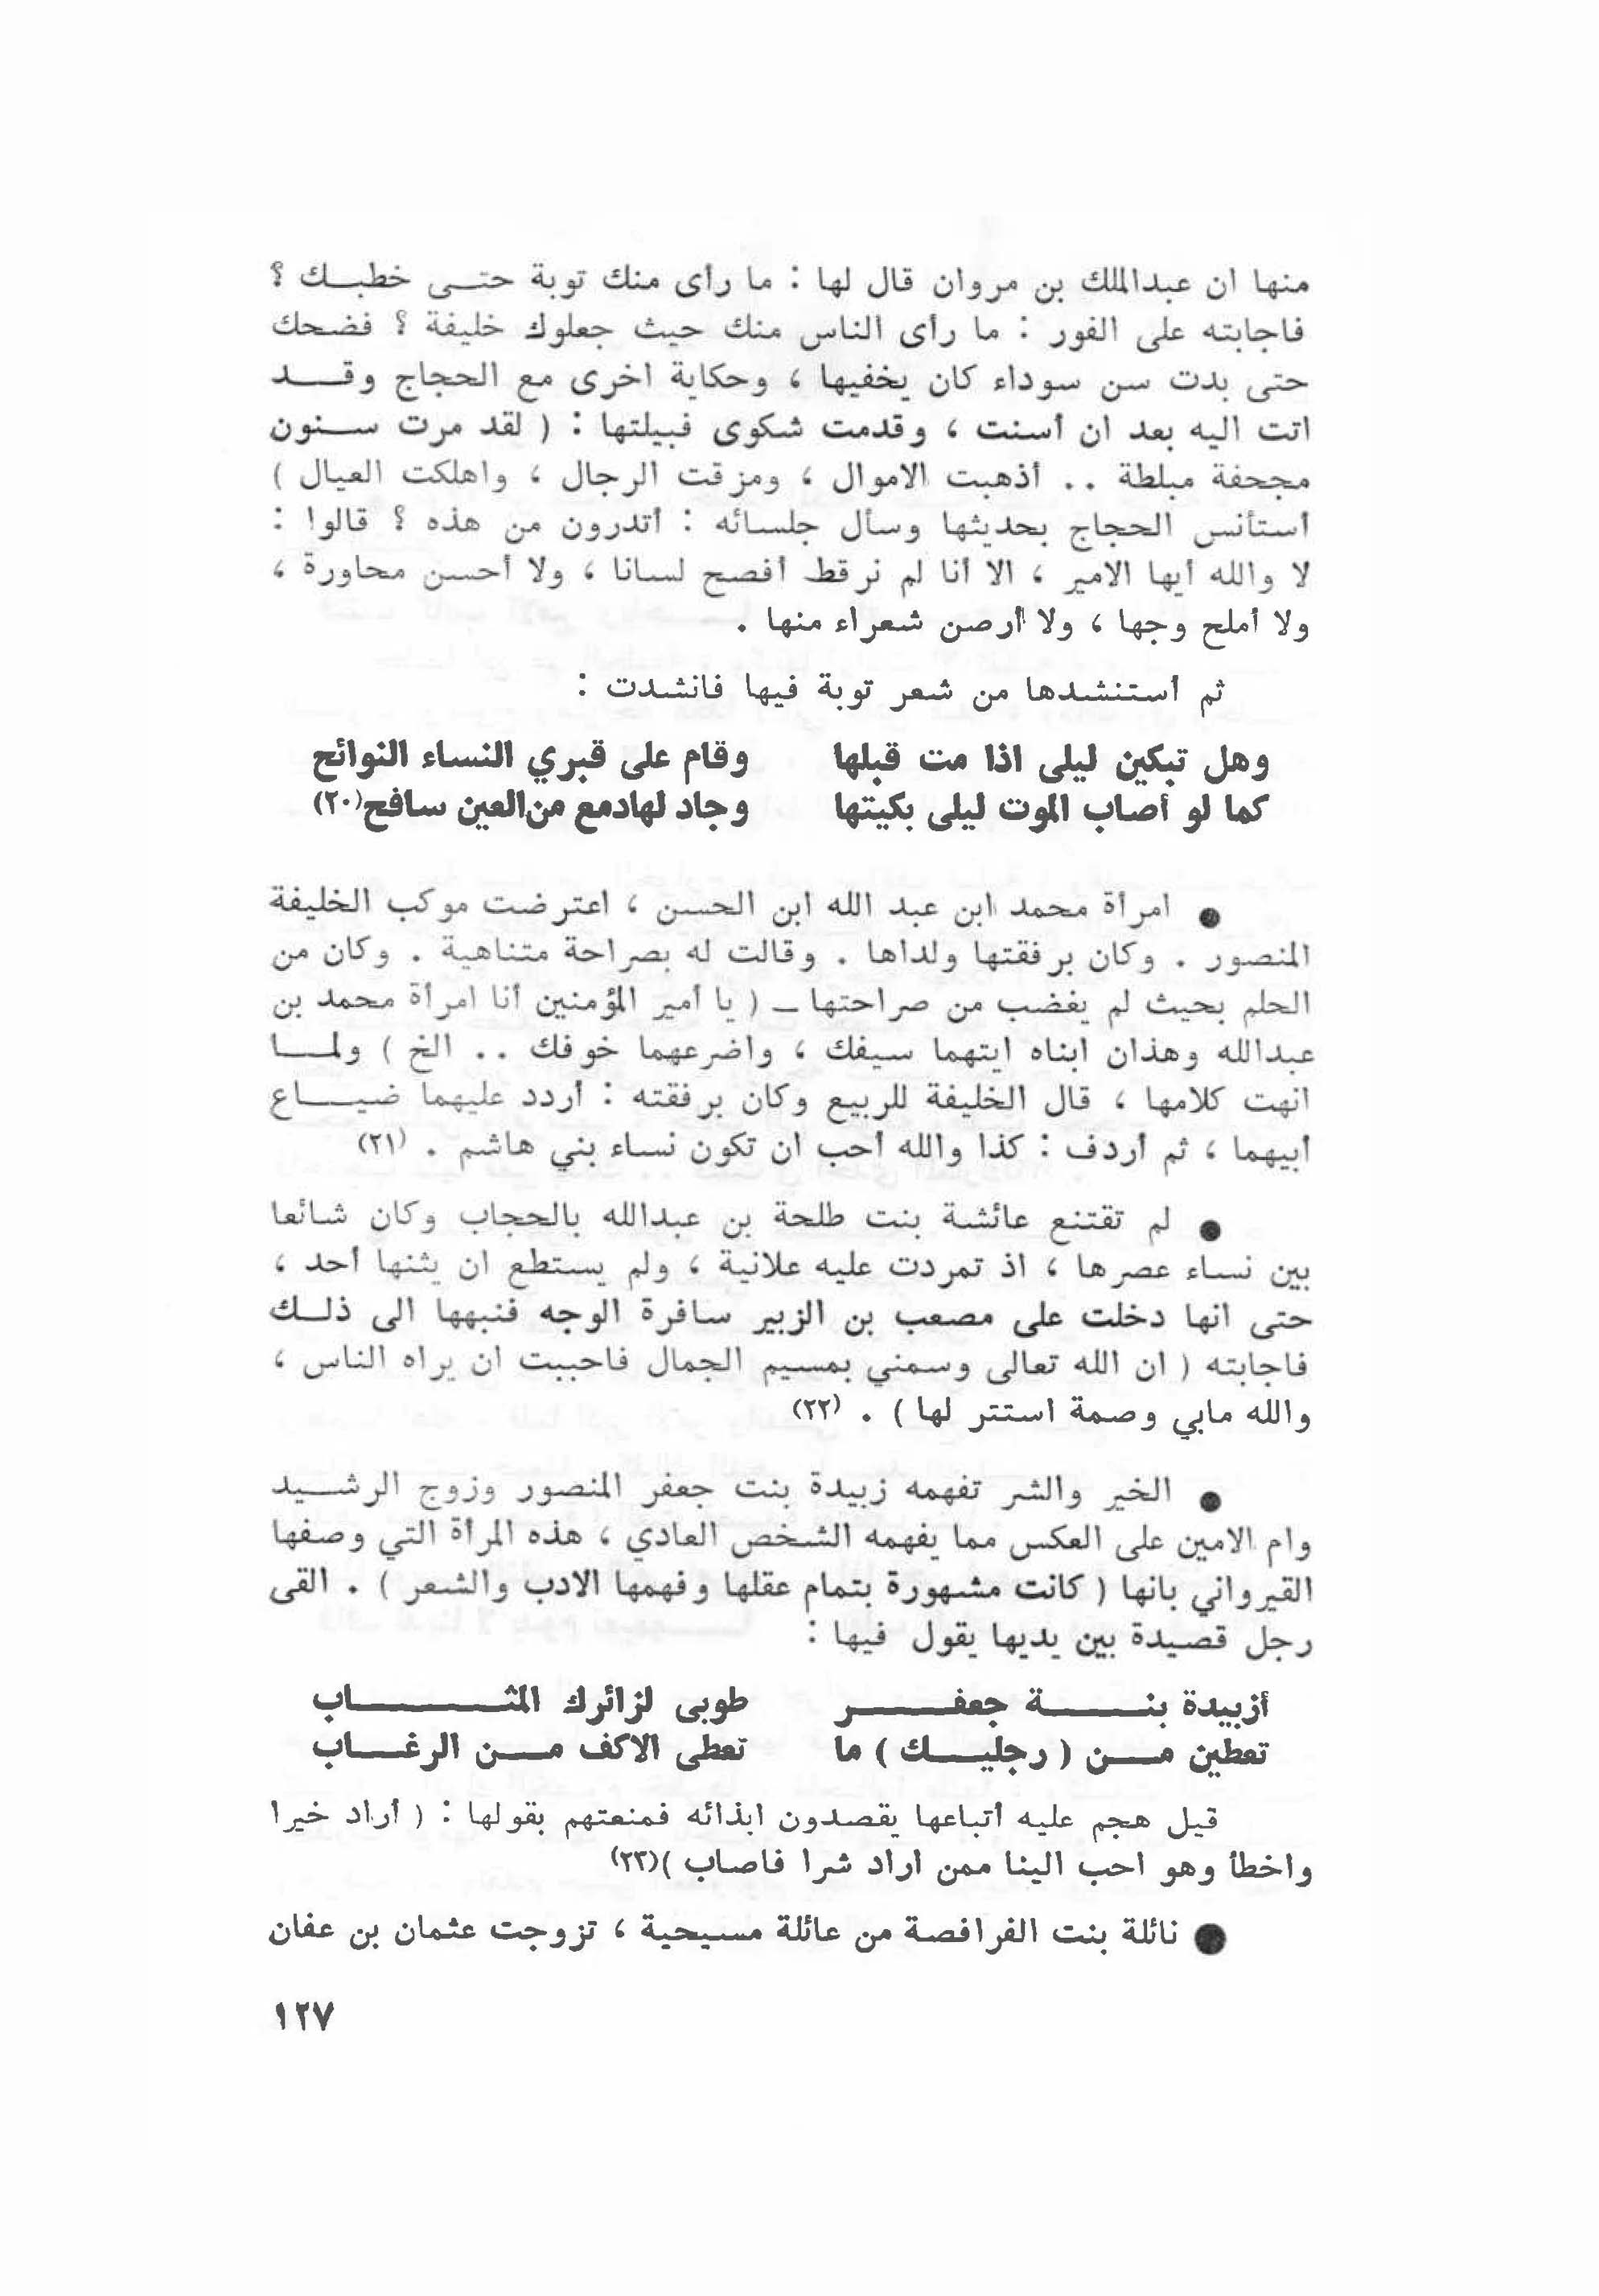 منها ان عبدالملك بن مروان قال لها : ما رأى منك توبة حتى خطبك ؟
فاجابته على الفور : ما رأى الناس منك حيث جعلوك خليفة ؟ فضحك
حتى بدت سن سوداء كان يخفيها ، وحكاية اخرى مع الحجاج وقد
اتت اليه بعد ان أسنت ، وقدمت شكوى قبيلتها : ( لقد مرت سنون
مجحفة مبلطة .. أذهبت الاموال ، ومزقت الرجال ، واهلكت العيال )
أستأنس الحجاج بحديثها وسأل جلسائه : أتدرون من هذه ؟ قالوا :
لا والله أيها الامير ، الا أنا لم نر قط أفصح لسانا ، ولا أحسن محاورة ،
ولا أملح وجها ، ولا أرصن شعراء منها .
ثم أستنشدها من شعر توبة فيها فانشدت :
وهل تبكين ليلى اذا مت قبلها وقام على قبري النساء النوائح
كما لو أصاب الموت ليلى بكيتها وجاد لهادمع من العين سافح(٢٠)
● امرأة محمد ابن عبد الله ابن الحسن ، اعترضت موكب الخليفة
المنصور . وكان برفقتها ولداها . وقالت له بصراحة متناهية . وكان من
الحلم بحيث لم يغضب من صراحتها ـ ( يا أمير المؤمنين أنا امرأة محمد بن
عبدالله وهذان ابناه ايتهما سيفك ، واضرعهما خوفك .. الخ ) ولما
انهت كلامها ، قال الخليفة للربيع وكان برفقته : أردد عليهما ضياع
أبيهما ، ثم أردف : كذا والله أحب ان تكون نساء بني هاشم . (٢١)
● لم تقتنع عائشة بنت طلحة بن عبدالله بالحجاب وكان شائعا
بين نساء عصرها ، اذ تمردت عليه علانية ، ولم يستطع ان يثنها أحد ،
حتى انها دخلت على مصعب بن الزبير سافرة الوجه فنبهها الى ذلك
فاجابته ( ان الله تعالى وسمني بمسيم الجمال فاحببت ان يراه الناس ،
والله مابي وصمة استتر لها ) . (٢٢)
● الخير والشر تفهمه زبيدة بنت جعفر المنصور وزوج الرشيد
وام الامين على العكس مما يفهمه الشخص العادي ، هذه المرأة التي وصفها
القيرواني بانها ( كانت مشهورة بتمام عقلها وفهمها الادب والشعر ) . القى
رجل قصيدة بين يديها يقول فيها :
أزبيدة بنة جعفر طوبى لزائرك المثاب
تعطين من ( رجليك ) ما تعطى الاكف من الرغاب
قيل هجم عليه أتباعها يقصدون ايذائه فمنعتهم بقولها : ( أراد خيرا
واخطأ وهو احب الينا ممن اراد شرا فاصاب )(٢٣)
● نائلة بنت الفرافصة من عائلة مسيحية ، تزوجت عثمان بن عفان
١٢٧